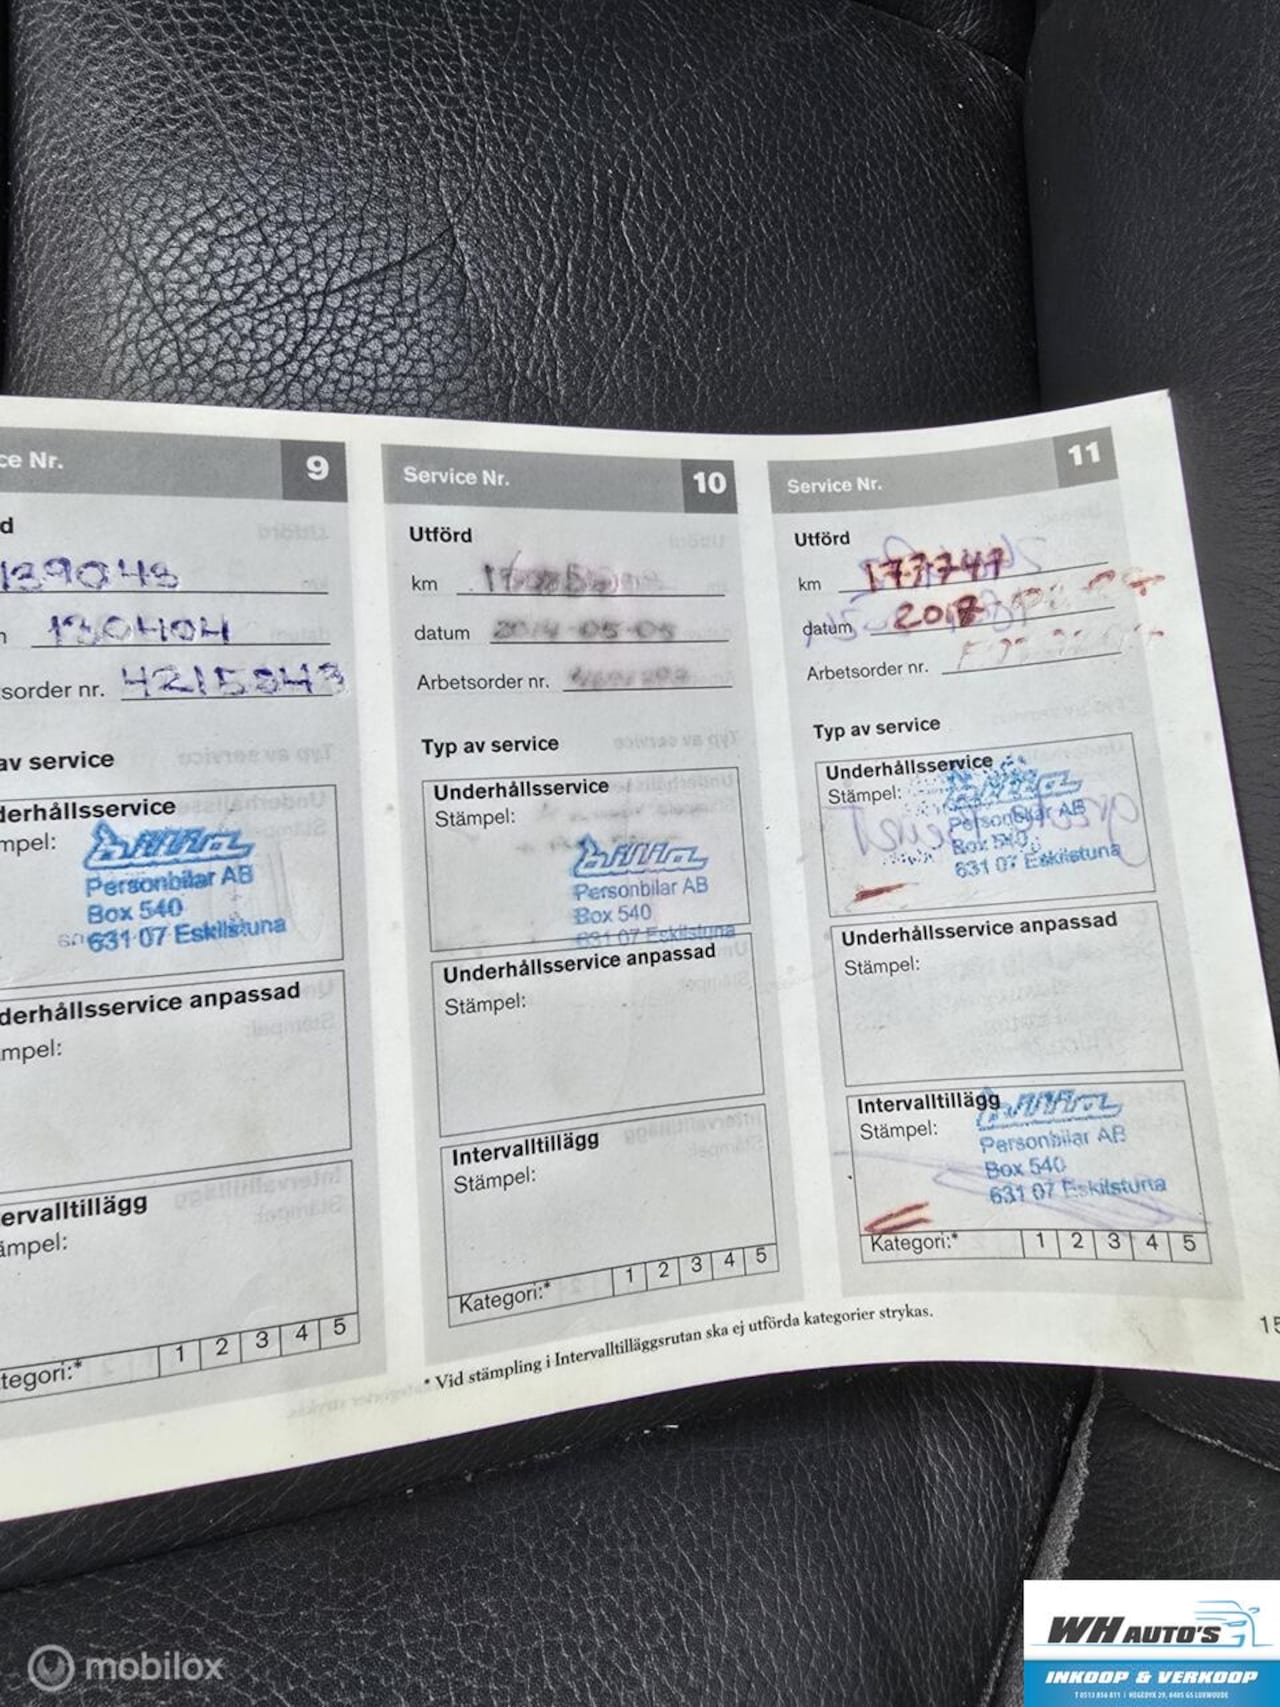 ce Nr. 9
d
139043
130404
sorder nr. 4215843
av service
derhållsservice
mpel:
bilia
Personbilar AB
Box 540
631 07 Eskilstuna
derhållsservice anpassad
mpel:
ervalltillägg
ämpel:
tegori:* 1 2 3 4 5
Service Nr. 10
Utförd
km
datum 2014-05-05
Arbetsorder nr.
Typ av service
Underhållsservice
Stämpel:
bilia
Personbilar AB
Box 540
631 07 Eskilstuna
Underhållsservice anpassad
Stämpel:
Intervalltillägg
Stämpel:
Kategori:* 1 2 3 4 5
Service Nr. 11
Utförd
km 177747
datum 2017
Arbetsorder nr.
Typ av service
Underhållsservice
Stämpel:
bilia
Personbilar AB
Box 540
631 07 Eskilstuna
Underhållsservice anpassad
Stämpel:
Intervalltillägg
Stämpel:
bilia
Personbilar AB
Box 540
631 07 Eskilstuna
Kategori:* 1 2 3 4 5
* Vid stämpling i Intervalltilläggsrutan ska ej utförda kategorier strykas.
15
mobilox
WH AUTO'S
INKOOP & VERKOOP